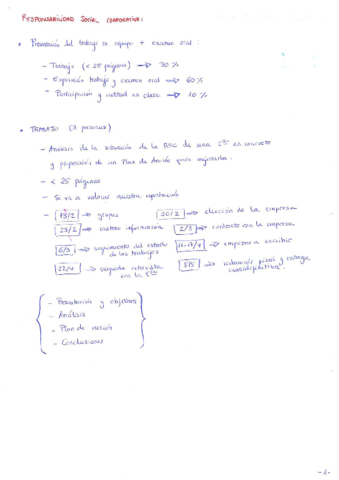 RESPONSABILIDAD SOCIAL CORPORATIVA:
• Presentación del trabajo se equipo + examen oral :
- Trabajo (< 25 páginas) → 30 %
- Exposición trabajo y examen oral → 60 %
- Participación y actitud en clase → 10 %
• TRABAJO (3 personas)
- Análisis de la situación de la RSC de una Cía en concreto
y proposición de un Plan de Acción para mejorarla.
- < 25 páginas
- Se va a valorar nuestra aportación
- 13/2 → grupos 20/2 → elección de la empresa
23/2 → vaciado información 2/3 → contacto con la empresa
6/3 → seguimiento del estado de los trabajos 11-17/4 → empezar a escribir
27/4 → segunda entrevista con la Cía 8/5 → redacción final y entrega
- Presentación y objetivos
- Análisis
- Plan de acción
- Conclusiones
-1-